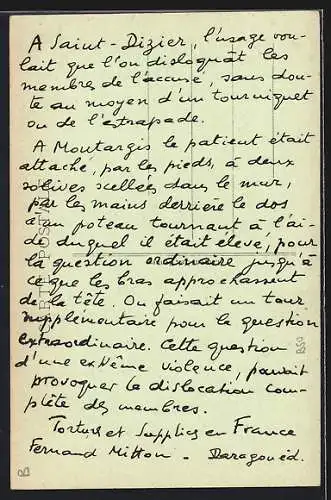 A Saint-Dizier, l'usage vou-
lait que l'on disloquât les
membres de l'accusé, sans dou-
te au moyen d'un tourniquet
ou de l'estrapade.
A Montargis le patient était
attaché, par les pieds, à deux
solives scellées dans le mur,
par les mains derrière le dos
à un poteau tournant à l'ai-
de duquel il était élevé, pour
la question ordinaire jusqu'à
ce que les bras approchassent
de la tête. On faisait un tour
supplémentaire pour la question
extraordinaire. Cette question
d'une extrême violence, pouvait
provoquer la dislocation com-
plète des membres.
Tortures et Supplices en France
Fernand Mitton - Daragon éd.